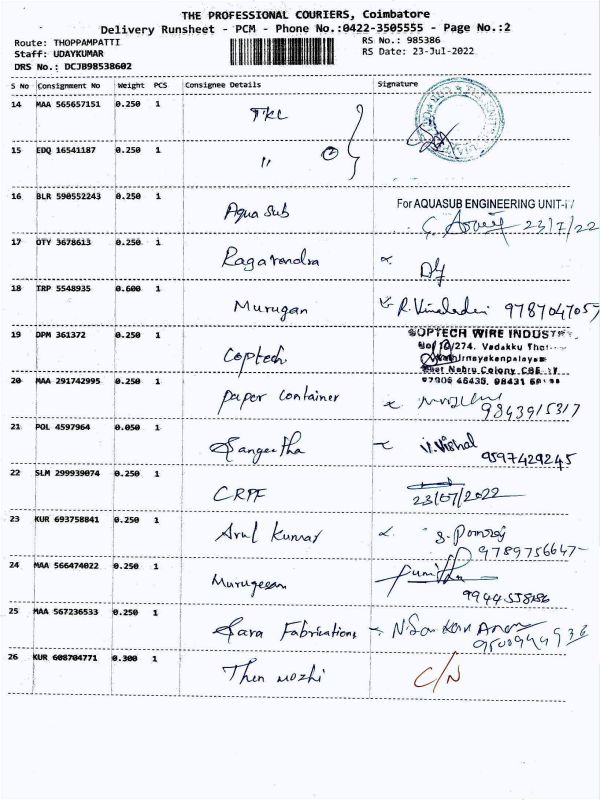 THE PROFESSIONAL COURIERS, Coimbatore
Delivery Runsheet - PCM - Phone No.:0422-3505555 - Page No.:2
Route: THOPPAMPATTI RS No.: 985386
Staff: UDAYKUMAR RS Date: 23-Jul-2022
DRS No.: DCJB98538602
S No Consignment No Weight PCS Consignee Details Signature
14 MAA 565657151 0.250 1 TKL
15 EDQ 16541187 0.250 1 " 2
16 BLR 590552243 0.250 1 Aqua Sub For AQUASUB ENGINEERING UNIT-IV
23/7/22
17 OTY 3678613 0.250 1 Ragavendra
18 TRP 5548935 0.600 1 Murugan R. 9787047057
19 DPM 361372 0.250 1 Coptech COPTECH WIRE INDUSTR
No. 10/274. Vadakku Tho
East Nehru Colony CBE
20 MAA 291742995 0.250 1 paper container
9843915317
21 POL 4597964 0.050 1 Sangeetha V. Vishal
9597429245
22 SLM 299939074 0.250 1 CRPF 23/07/2022
23 KUR 693758841 0.250 1 Arul Kumar
9789756647
24 MAA 566474022 0.250 1 Murugesan
25 MAA 567236533 0.250 1 Sara Fabrications
26 KUR 608704771 0.300 1 Then mozhi C/N